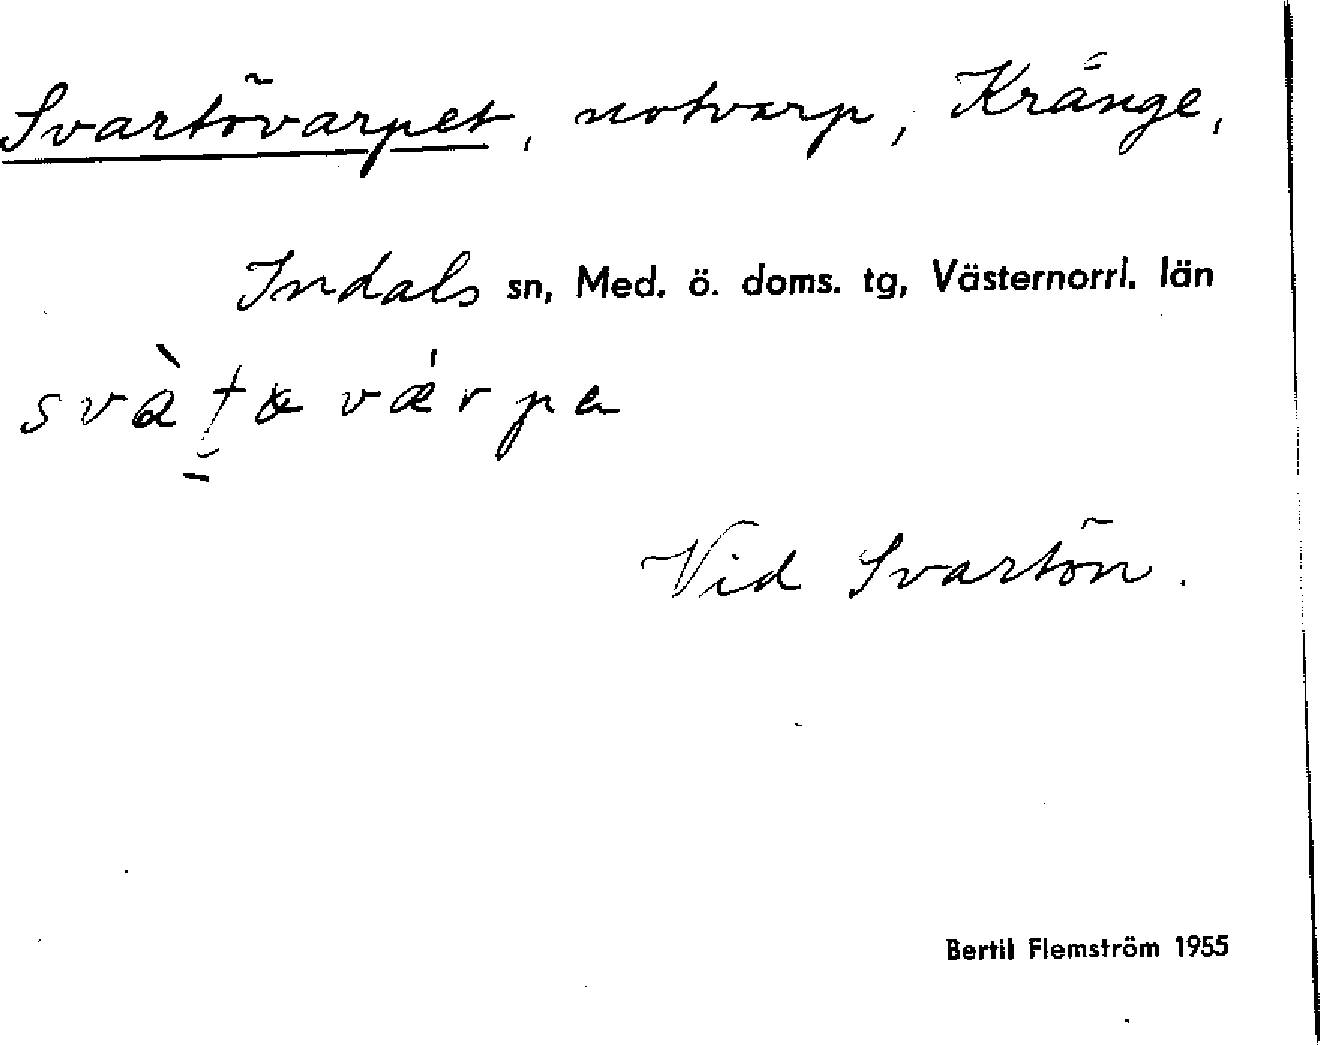 Svartövarpet, notvarp, Kränge,
Indals sn, Med. ö. doms. tg, Västernorrl. län
Vid Svartön.
Bertil Flemström 1955